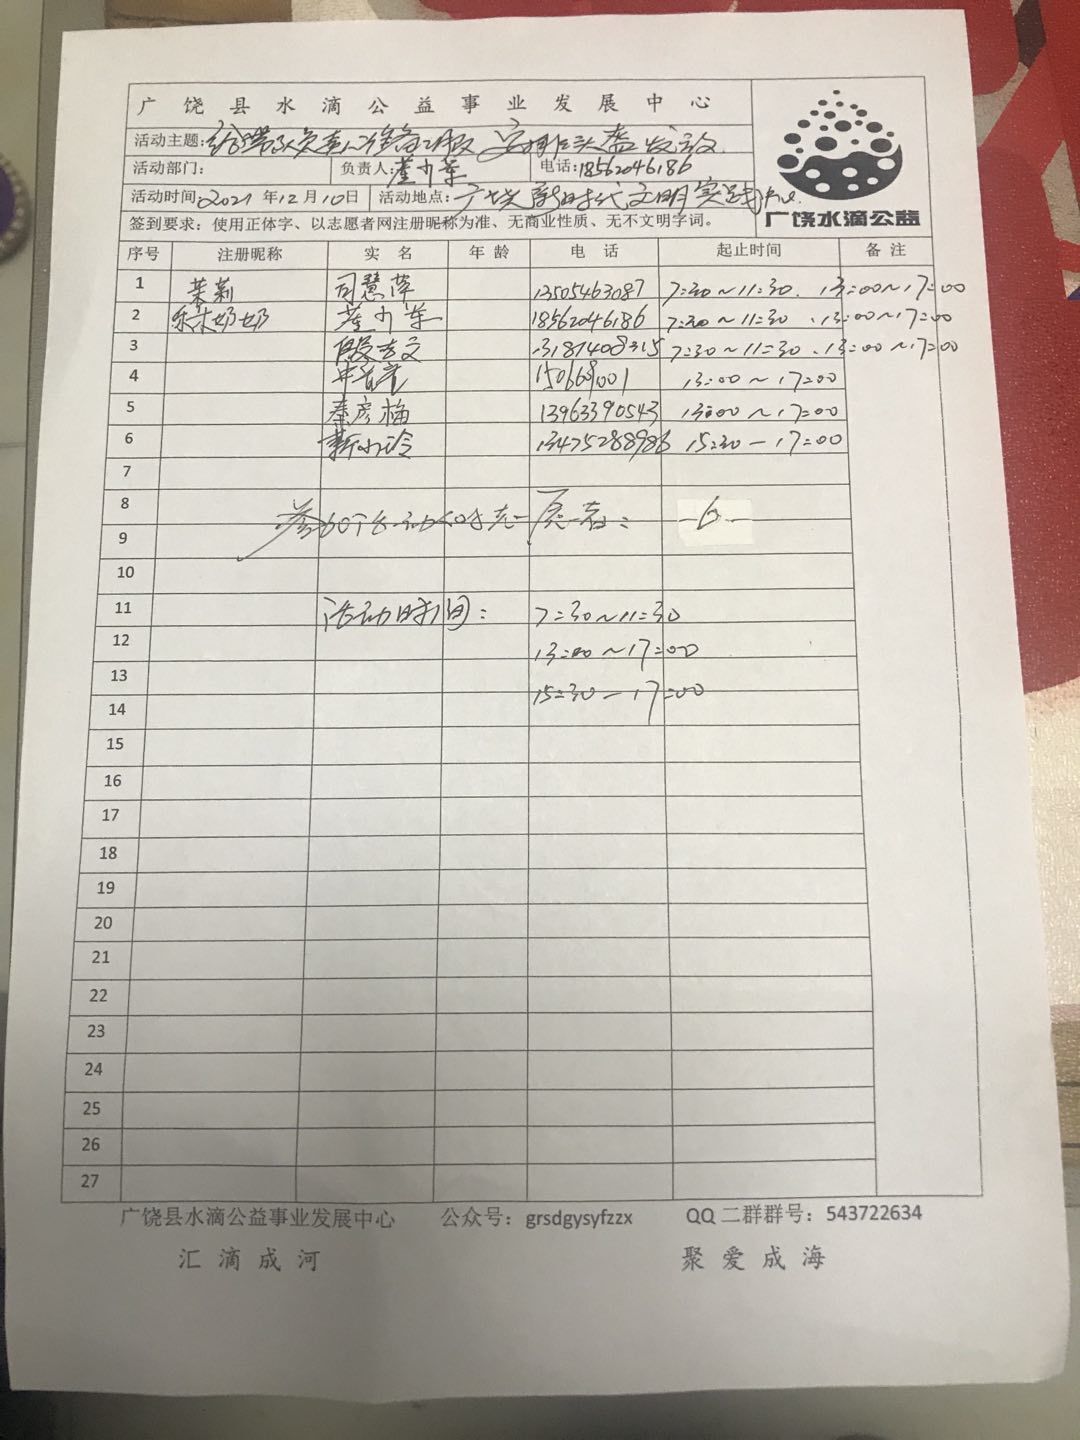 广饶县水滴公益事业发展中心
活动主题:给带队负责人准备工服 头盔发放
活动部门: 负责人: 电话:18562046186
活动时间2021年12月10日 活动地点:广饶新时代文明实践中心
广饶水滴公益
签到要求：使用正体字、以志愿者网注册昵称为准、无商业性质、无不文明字词。
序号 注册昵称 实名 年龄 电话 起止时间 备注
1 茉莉 司慧萍 13505463087 7:30~11:30、13:00~17:00
2 乐乐奶奶 18562046186 7:30~11:30、13:00~17:00
3 13181408315 7:30~11:30、13:00~17:00
4 150669001 13:00~17:00
5 秦彦梅 13963390543 13:00~17:00
6 靳小玲 13475288986 15:30-17:00
7
8 参加活动 愿者： -6-
9
10
11 活动时间： 7:30~11:30
12 13:00~17:00
13 15:30-17:00
14
15
16
17
18
19
20
21
22
23
24
25
26
27
广饶县水滴公益事业发展中心 公众号：grsdgysyfzzx QQ二群群号：543722634
汇滴成河 聚爱成海